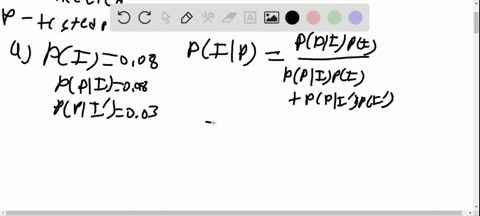 P - tested P
a) P(I)=0.08
P(P|I)=0.98
P(P|I')=0.03
P(I|P) = P(P|I)P(I)
P(P|I)P(I)
+ P(P|I')P(I')